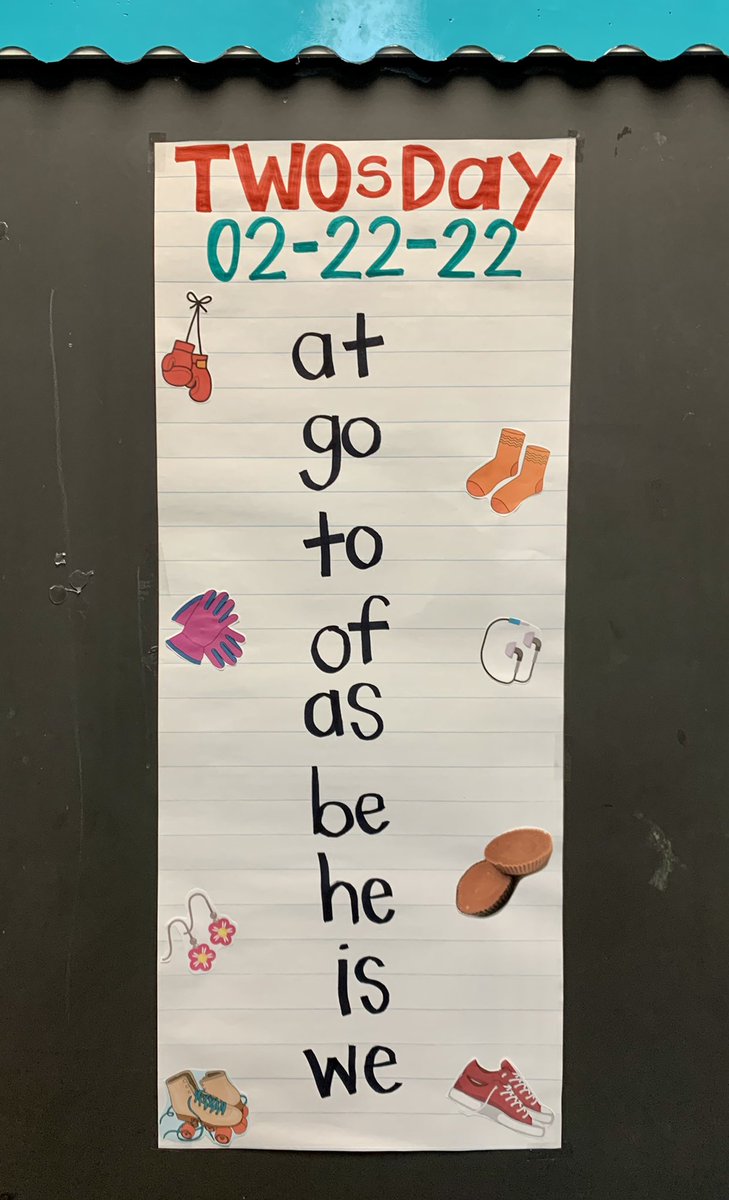 TWOsDay
02-22-22
at
go
to
of
as
be
he
is
we